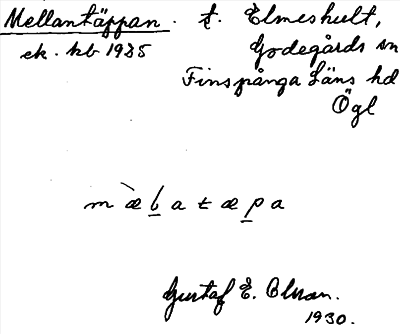 Mellantäppan. t. Elmeshult,
ek. kb 1935 Godegårds sn
Finspånga Läns hd
Ögl
m æ l a t æ p a
Gustaf E. Olsson.
1930.